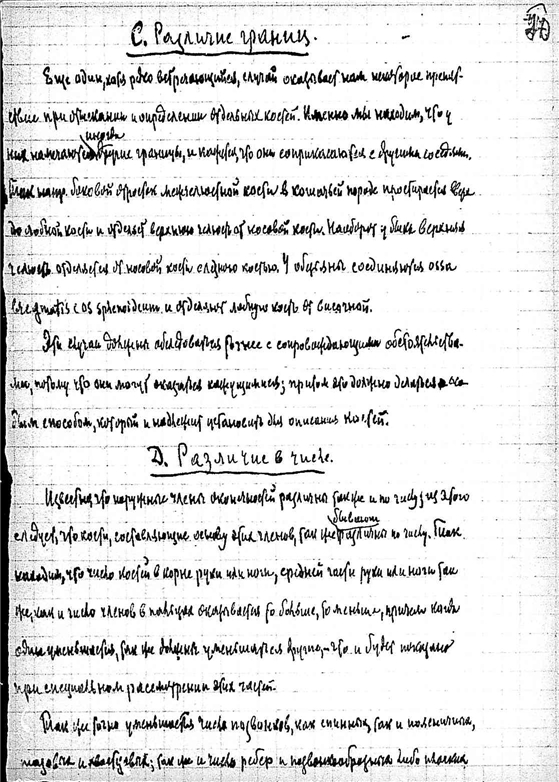 С. Различие границ.
Еще один, хотя редко встречающийся, случай оказывает нам некоторое препят-
ствие при отыскании и определении отдельных костей. Именно мы находим, что у
иногда
них намечаются другие границы, и кажется что они соприкасаются с другими соседями.
Так напр. боковой отросток межчелюстной кости в кошачьей породе простирается
до лобной кости и отделяет верхнюю челюсть от носовой кости. Наоборот у быка верхняя
челюсть отделяется от носовой кости слезною костью. У обезьяны соединяются ossa
bregmatis с os sphenoideum и отделяют лобную кость от височной.
Эти случаи должны обследоваться с сопровождающими обстоятельства-
ми, потому что они могут оказаться кажущимися; притом это должно делаться
способом, который и надлежит установить для описания костей.
D. Различие в числе.
Известно что наружные члены оконечностей различны также и по числу; из этого
бывают
следует, что кости, составляющие основу этих членов, также различны по числу. Так
находим, что число костей в корне руки или ноги, средней части руки или ноги так
же, как и число членов в пальцах оказывается то больше, то меньше, причем когда
одни уменьшаются, так же должны уменьшаться другие, – что и будет показано
при специальном рассмотрении этих частей.
Так же точно уменьшается число позвонков, как спинных, так и поясничных,
тазовых и хвостовых; так же и число ребер и позвонкообразных либо плоских